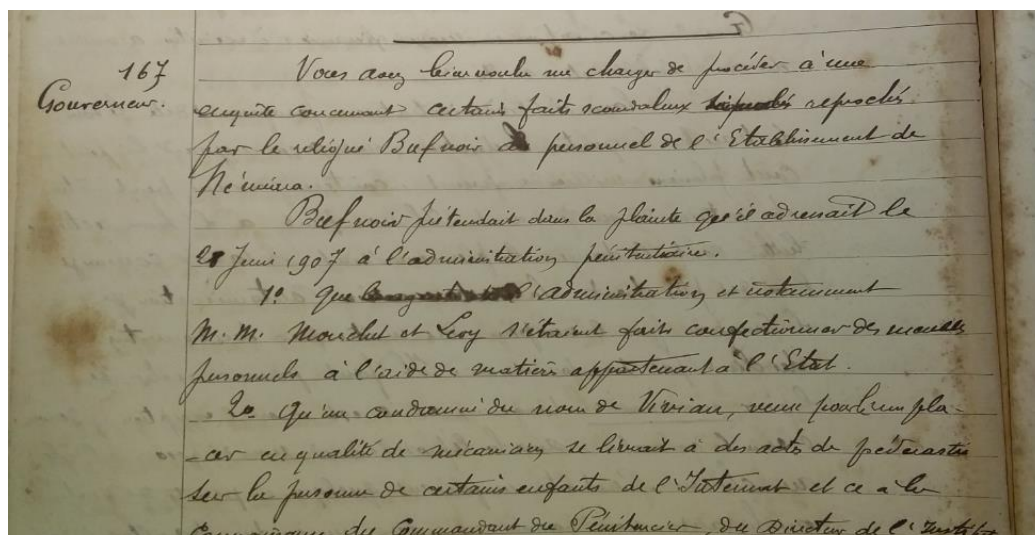 167
Gouverneur.
Vous avez bien voulu me charger de procéder à une
enquête concernant certains faits scandaleux reprochés
par le relégué Bœfnoir au personnel de l'Etablissement de
Néméra.
Bœfnoir prétendait dans la plainte qu'il adressait le
28 Juin 1907 à l'administration pénitentiaire.
1º que l'administration et notamment
M. M. Mouchet et Leoy s'étaient faits confectionner des meubles
personnels à l'aide de matières appartenant à l'Etat.
2º Qu'un condamné du nom de Vivian, venu pour le rempla-
-cer en qualité de mécanicien se livrait à des actes de pédérastie
sur la personne de certains enfants de l'Internat et ce à la
du Commandant du Pénitencier, du Directeur de l'